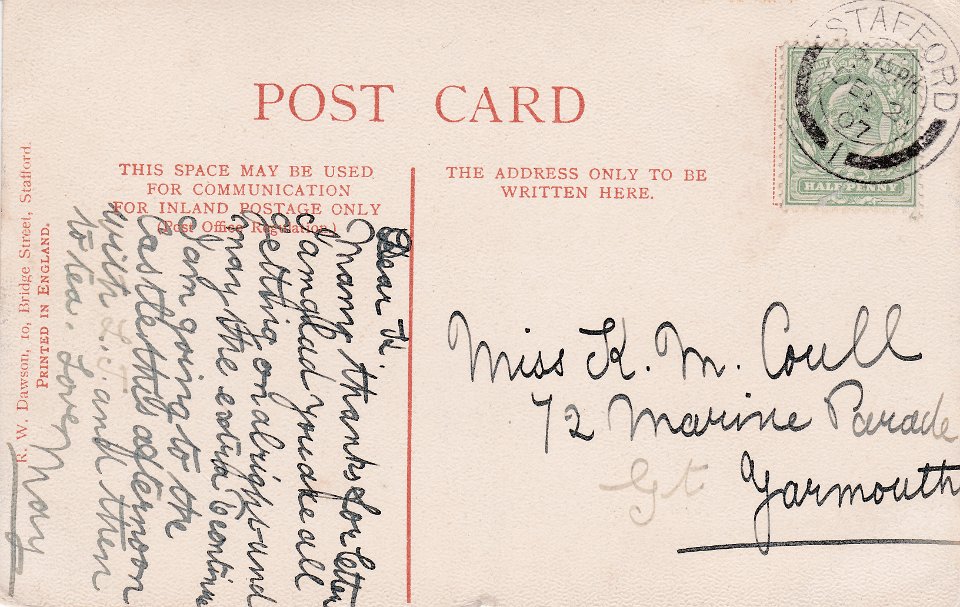 POST CARD
THIS SPACE MAY BE USED
FOR COMMUNICATION
FOR INLAND POSTAGE ONLY
(Post Office Regulation.)
THE ADDRESS ONLY TO BE
WRITTEN HERE.
STAFFORD
DE 2
07
HALF-PENNY
R. W. Dawson, 10, Bridge Street, Stafford.
PRINTED IN ENGLAND.
Dear K
Many thanks for letter
I am glad you are all
getting on alright and
may the extra continue
I am going to the
Castle this afternoon
with and then
to tea. Love
May
Miss K. M. Coull
72 Marine Parade
Gt Yarmouth